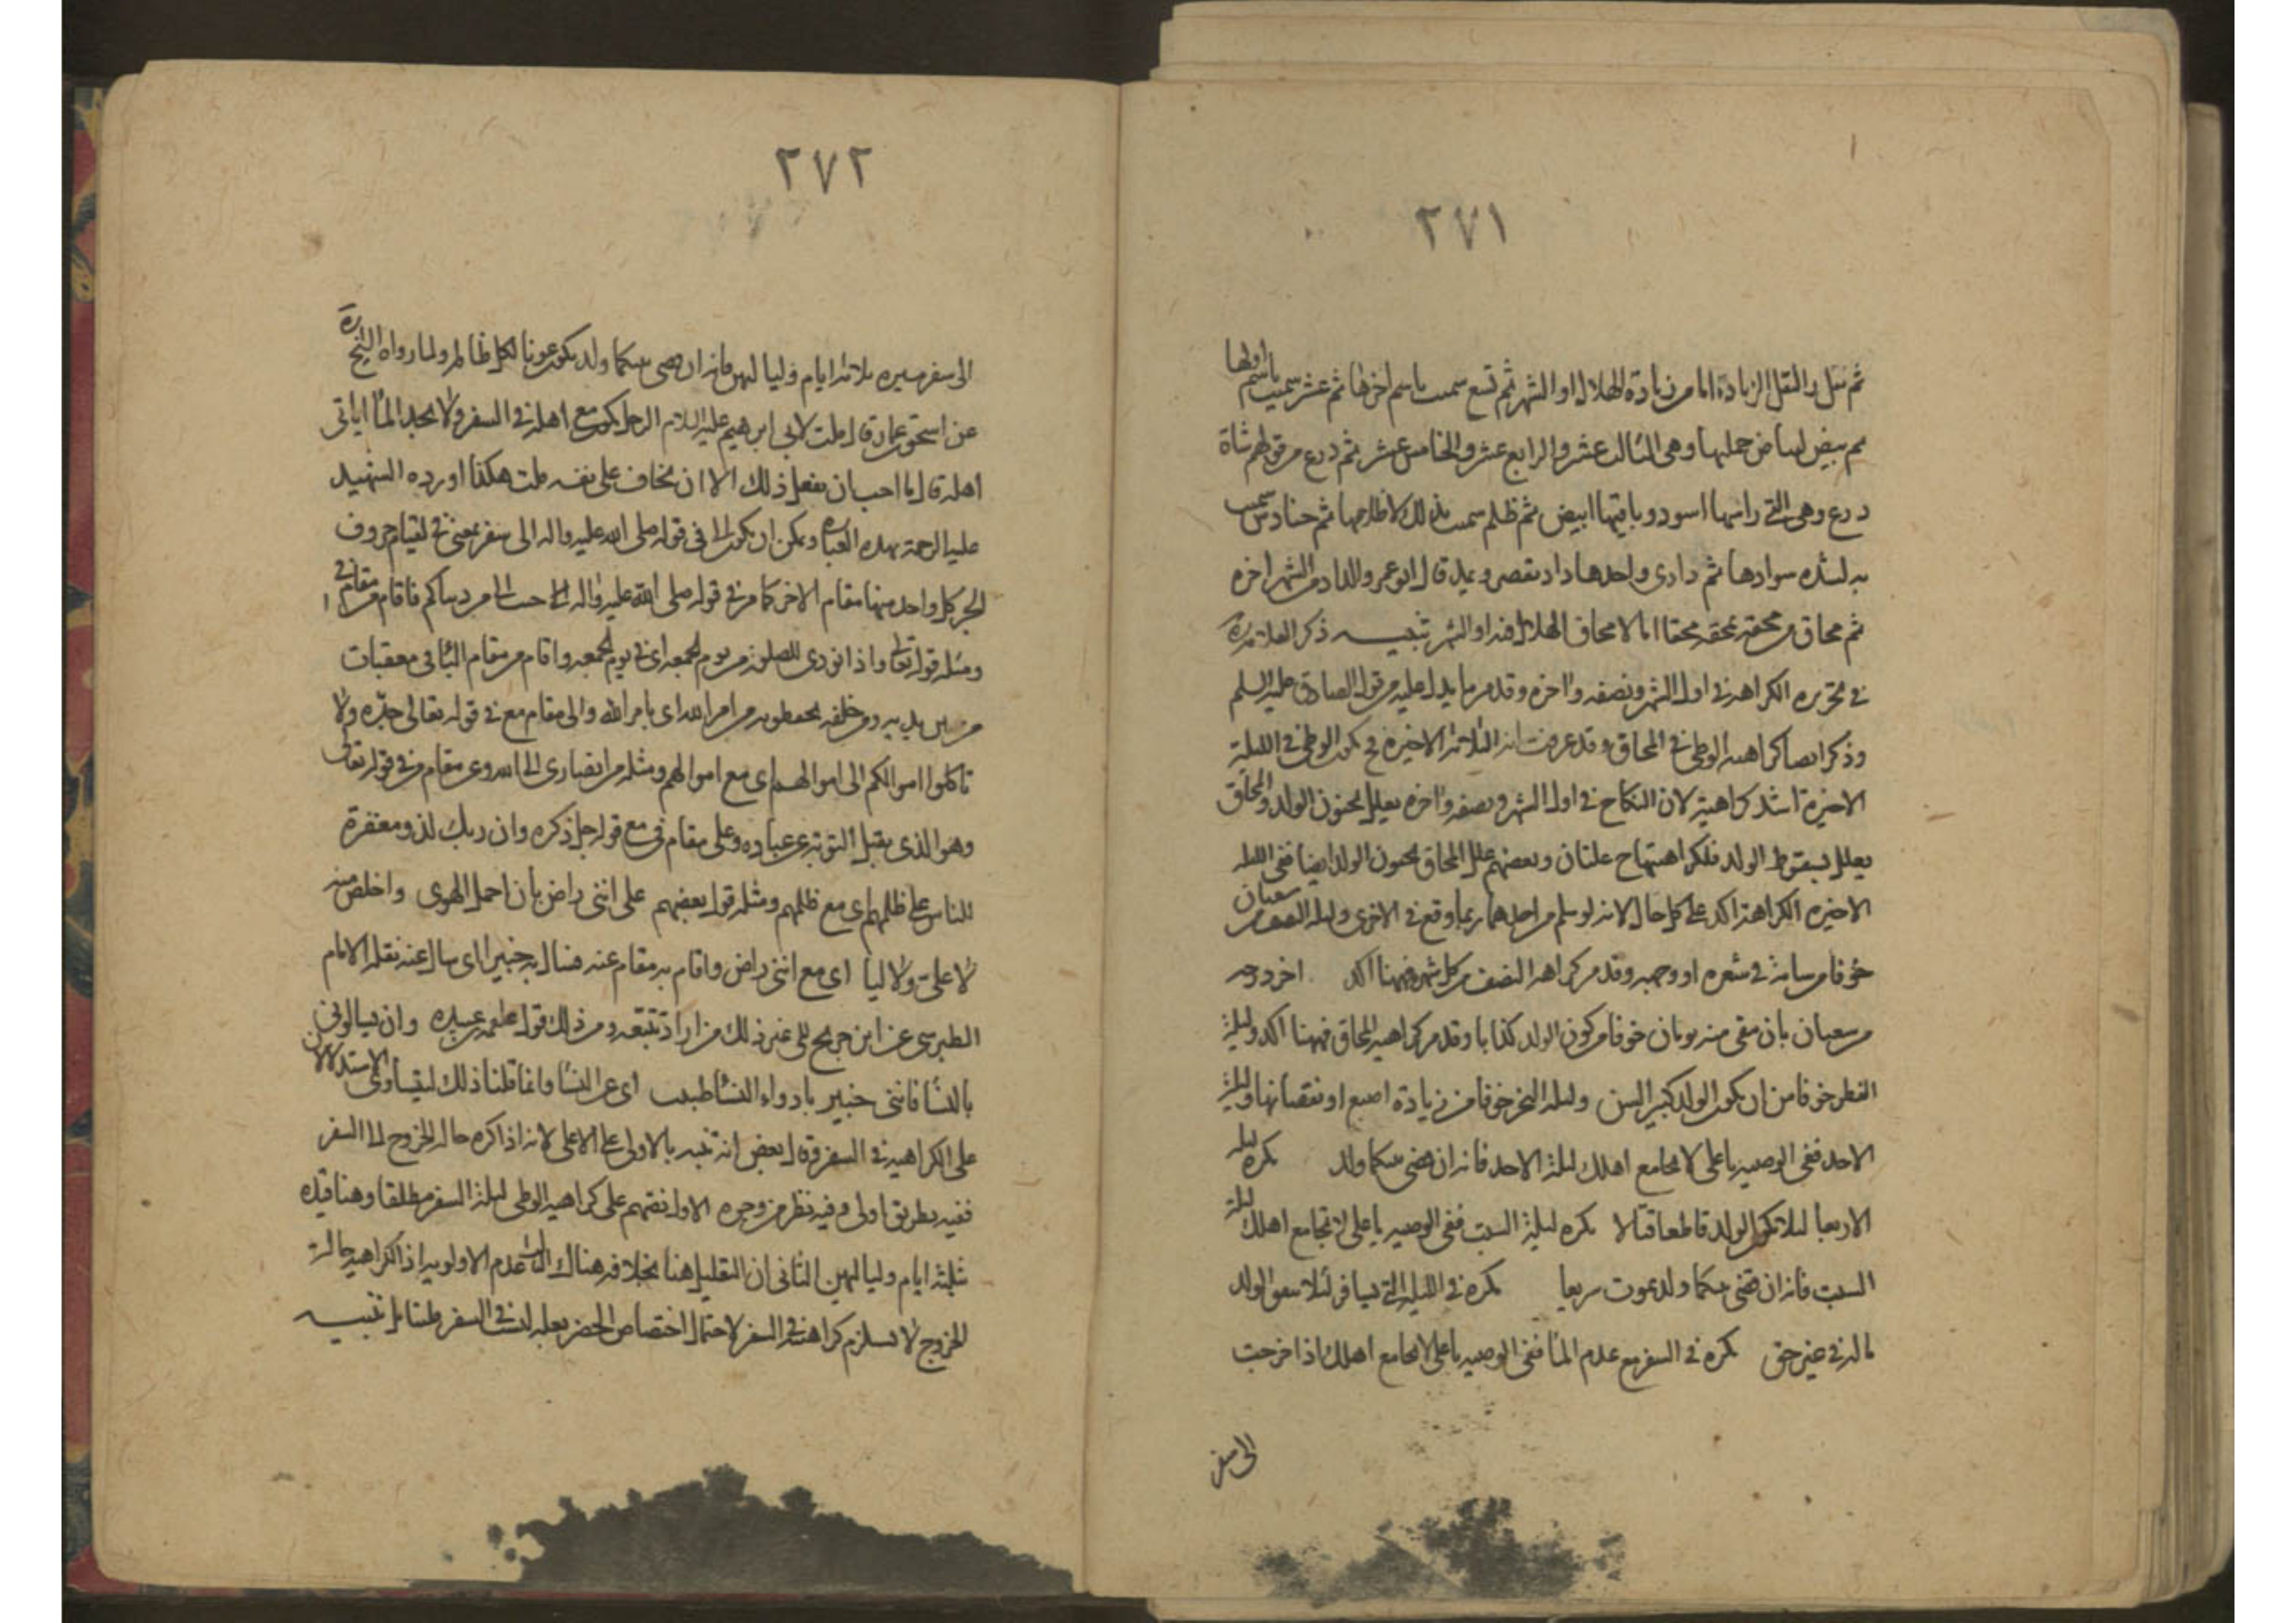 ٢٧١
ثم نفل والنفل الزيادة اما من زيادة الهلال او الشهر ثم تسع سميت باسم اخرها ثم عشر سميت باسم اولها
ثم بيض لبياض جملها وهى الثالث عشر والرابع عشر والخامس عشر ثم درع من قولهم شاة
درع وهى التى راسها اسود وباقيها ابيض ثم ظلم سميت بذلك لاظلامها ثم حنادس سميت
به لشده سوادها ثم دادى واحدها داد بقصر ويمد قال ابو عمرو الداد من الشهر اخره
ثم محاق من محقه يمحقه محقا اما لامحاق الهلال فيه او الشهر تنبيه ذكر العلامة ره
فى تحريره الكراهة فى اول الشهر ونصفه واخره وقد مر ما يدل عليه من قول الصادق عليه السلم
وذكر ايضا كراهية الوطى فى المحاق وقد عرفت انه الثلاثة الاخيرة فيكون الوطى فى الليلة
الاخيرة اشد كراهية لان النكاح فى اول الشهر ونصفه واخره يعلل بجنون الولد والمحاق
يعلل بسقوط الولد فلكراهتها ح علتان وبعضهم علل المحاق بجنون الولد ايضا ففى الليله
الاخيره الكراهة اكد على كل حال لانه لو سلم من احدهما ربما وقع فى الاخرى وليلة النصف من شعبان
خوفا من شامة فى شعره او وجهه وقد مر كراهة النصف من كل شهر فهنا اكد اخر درجه
من شعبان بان بقى منه يومان خوفا من كون الولد كذابا وقد مر كراهية المحاق فههنا اكد وليلة
الفطر خوفا من ان يكون الولد كبير السن وليلة النحر خوفا من زيادة اصبع او نقصانها وليلة
الاحد ففى الوصيه يا على لا تجامع اهلك ليلة الاحد فانه ان قضى بينكما ولد يكره ليله
الاربعا لئلا يكون الولد قاطعا قتالا يكره ليلة السبت ففى الوصيه يا على لا تجامع اهلك ليلة
السبت فانه ان قضى بينكما ولد يموت سريعا يكره فى الليلة التى يسافر لئلا ينفق الولد
ماله فى غير حق يكره فى السفر مع عدم الماء ففى الوصيه يا على لا تجامع اهلك اذا خرجت
الى سفر
٢٧٢
الى سفر مسيره ثلاثة ايام ولياليهن فانه ان قضى بينكما ولد يكون عونا لكل ظالم ولما رواه الشيخ ره
عن اسحق بن عمار قال قلت لابى ابرهيم عليه السلام الرجل يكون مع اهله فى السفر ولا يجد الماء اياتى
اهله قال ما احب ان يفعل ذلك الا ان يخاف على نفسه قلت هكذا اورده الشهيد
عليه الرحمة بهذه العباره ويمكن ان يكون الى فى قوله صلى الله عليه واله الى سفر بمعنى فى لقيام حروف
الجر كل واحد منها مقام الاخر كما مر فى قوله صلى الله عليه واله الى حبب الى من دنياكم فاقام من مقام فى
ومثله قوله تعالى واذا نودى للصلوة من يوم الجمعه اى فى يوم الجمعه واقام من مقام الباء فى معقبات
من بين يديه ومن خلفه يحفظونه من امر الله اى بامر الله والى مقام مع فى قوله تعالى ولا
تاكلوا اموالكم الى اموالهم اى مع اموالهم ومثله من انصارى الى الله وعن مقام من فى قوله تعالى
وهو الذى يقبل التوبة عن عباده وعلى مقام فى مع قوله جل ذكره وان ربك لذو مغفرة
للناس على ظلمهم اى مع ظلمهم ومثله قول بعضهم على اننى راض بان احمل الهوى واخلص منه
لا على ولا ليا اى مع اننى راض واقام به مقام عنه فسال به خبيرا اى سال عنه نقله الامام
الطبرسى عن ابن جريح الى غير ذلك من اراد تتبعه ومن ذلك قول علقمه بن عبده وان تسالونى
بالنسا فاننى خبير بادواء النسا طبيب اى عن النسا وانما قلنا ذلك ليتساوى الاستدلالان
على الكراهية فى السفر وقال بعض انه تنبيه بالاولى على الاعلى لانه اذا كره حاله الخروج الى السفر
ففيه بطريق اولى وفيه نظر من وجوه الاول نصهم على كراهية الوطى ليلة السفر مطلقا وهنا قيده
ثلثة ايام ولياليهن الثانى ان التعليل هنا بخلافه هناك الثالث عدم الاولويه اذ الكراهيه حالة
الخروج لا تستلزم كراهته فى السفر لاحتمال اختصاص الحضر بعله ليست فى السفر فتامل تنبيه